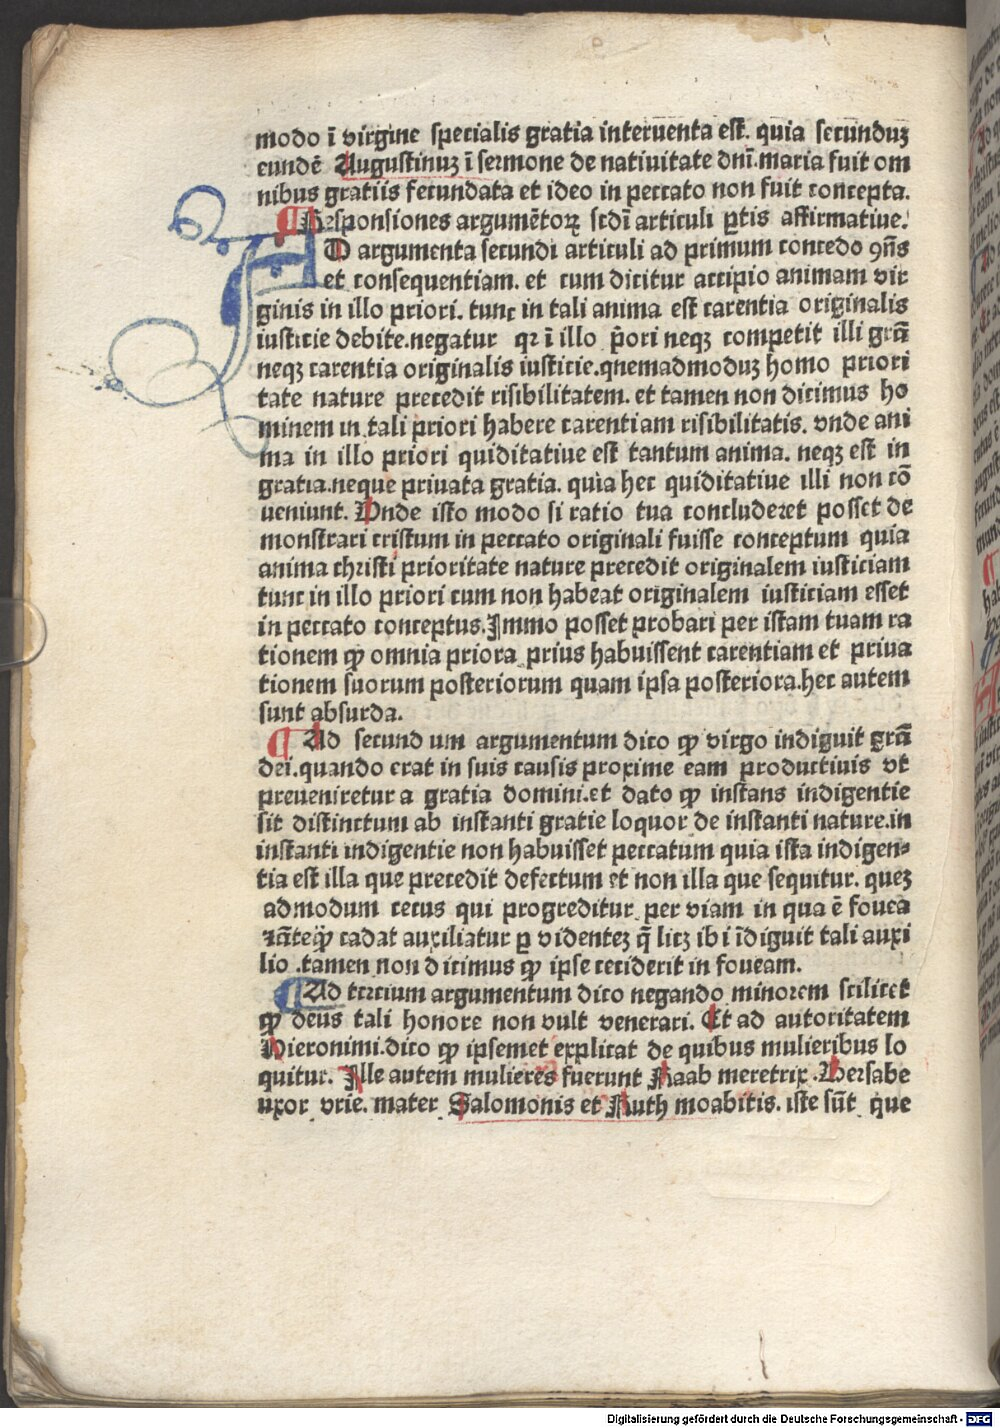 modo ī virgine specialis gratia interuenta est. quia secunduꝫ
eundē Augustinuꝫ ī sermone de natiuitate dnī.maria fuit om
nibus gratiis fecundata et ideo in peccato non fuit concepta.
¶ Responsiones argumētoꝝ scdī articuli ꝑtis affirmatiue.
AD argumenta secundi articuli ad primum concedo ꝯñs
et consequentiam. et cum dicitur accipio animam vir
ginis in illo priori. tunc in tali anima est carentia originalis
iusticie debite.negatur qꝛ ī illo p̄ori neqꝫ competit illi gr̄a
neqꝫ carentia originalis iusticie.qnemadmoduꝫ homo priori
tate nature precedit risibilitatem. et tamen non dicimus ho
minem in tali priori habere carentiam risibilitatis. vnde ani
ma in illo priori quiditatiue est tantum anima. neqꝫ est in
gratia.neque priuata gratia. quia hec quiditatiue illi non cō
ueniunt. Vnde isto modo si ratio tua concluderet posset de
monstrari cristum in peccato originali fuisse conceptum quia
anima christi prioritate nature precedit originalem iusticiam
tunc in illo priori cum non habeat originalem iusticiam esset
in peccato conceptus.Immo posset probari per istam tuam ra
tionem ꝙ omnia priora prius habuissent carentiam et priua
tionem suorum posteriorum quam ipsa posteriora.hec autem
sunt absurda.
¶ Ad secund um argumentum dico ꝙ virgo indiguit gr̄a
dei.quando erat in suis causis proxime eam productiuis vt
preueniretur a gratia domini.et dato ꝙ instans indigentie
sit distinctum ab instanti gratie loquor de instanti nature.in
instanti indigentie non habuisset peccatum quia ista indigen⸗
tia est illa que precedit defectum et non illa que sequitur. queꝫ
admodum cecus qui progreditur per viam in qua ē fouea
⁊ āteqꝙ cadat auxiliatur ꝑ videnteꝫ q̄ licꝫ ib i īdiguit tali auxi
lio .tamen non d icimus ꝙ ipse ceciderit in foueam.
¶ Ad tercium argumentum dico negando minorem scilicet
ꝙ deus tali honore non vult venerari. Et ad autoritatem
Hieronimi.dico ꝙ ipsemet explicat de quibus mulieribus lo
quitur. Ille autem mulieres fuerunt Raab meretrix.Bersabe
uxor vrie. mater Salomonis et Ruth moabitis. iste sūt que
Digitalisierung gefördert durch die Deutsche Forschungsgemeinschaft - DFG